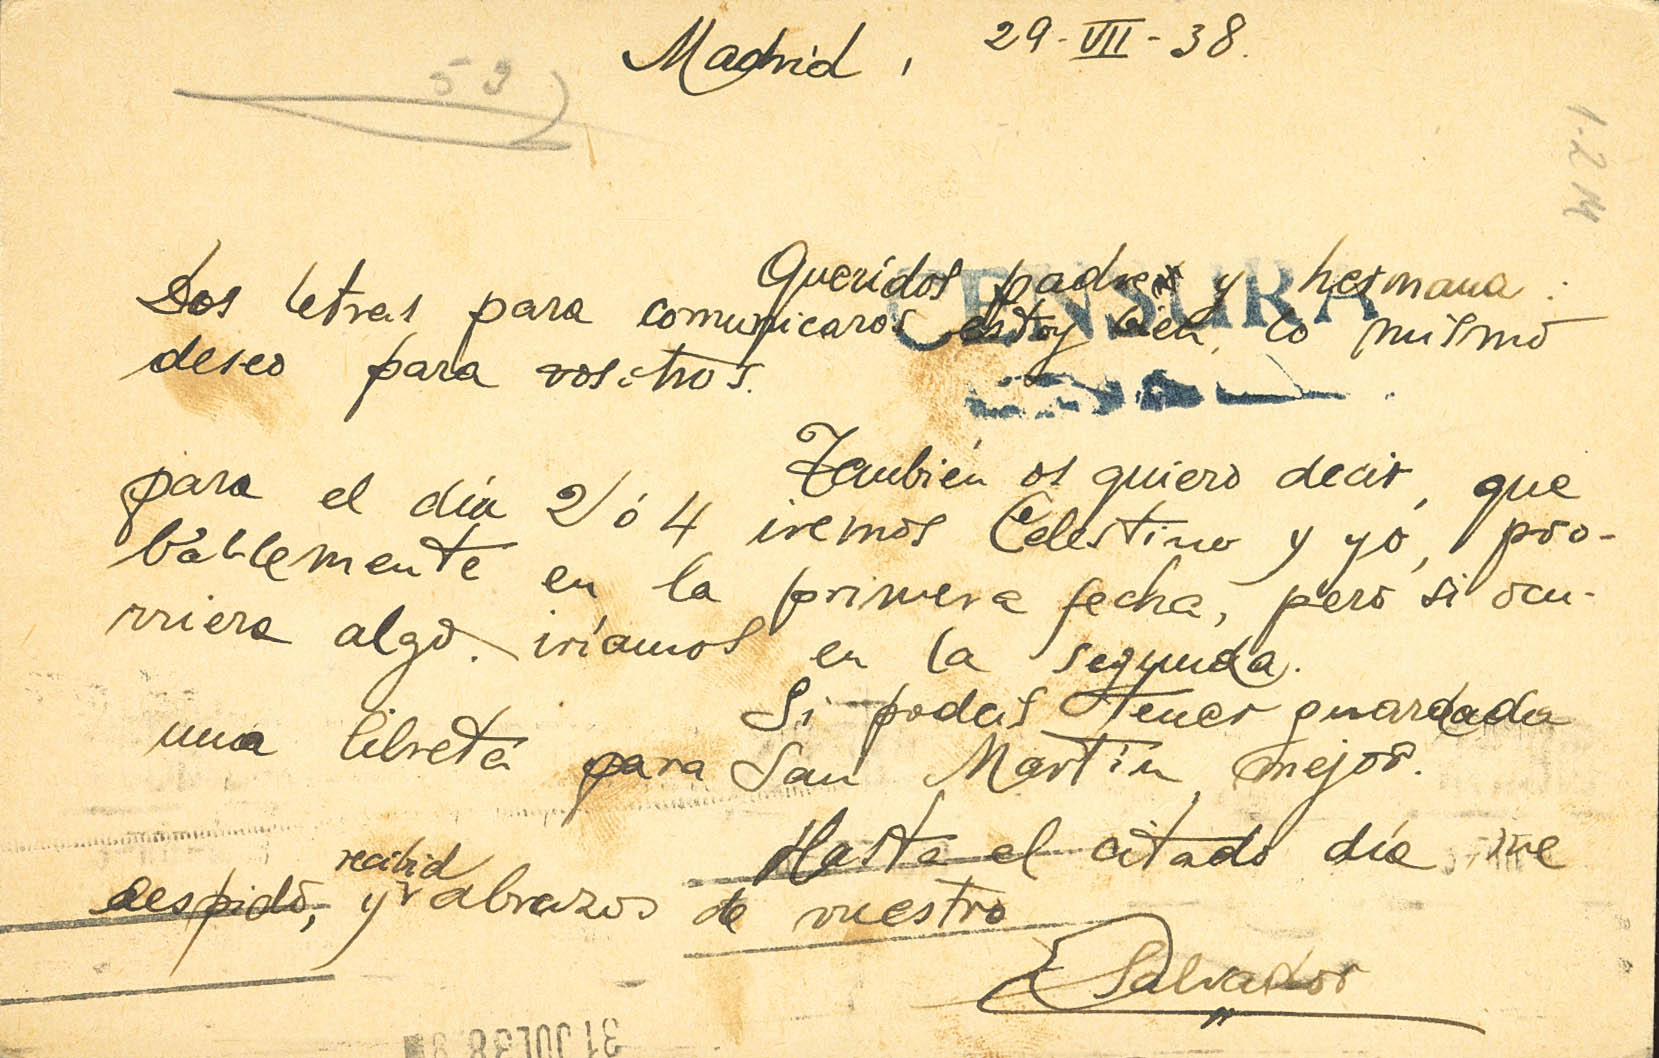 Madrid, 29-VII-38.
59
1-2 M
Queridos padres y hermana:
Dos letras para comunicaros estoy bien, lo mismo
deseo para vosotros.
CENSURA
También os quiero decir, que
para el día 2 ó 4 iremos Celestino y yo, pro-
bablemente en la primera fecha, pero si ocu-
rriera algo. iríamos en la segunda.
Si podeis tener guardada
una libreta para San Martín, mejor.
Hasta el citado día me
despido, y recibid abrazos de vuestro
Salvador
31 JUL 38